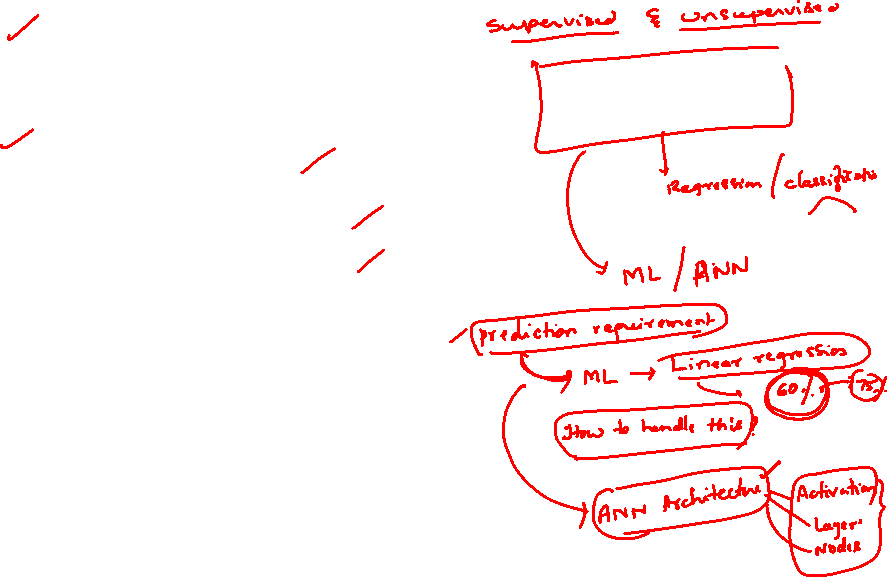 Supervised & unsupervised
Regression / classification
ML / ANN
Prediction requirement
ML → Linear regression
60% 75%
How to handle this?
ANN Architecture
Activation
Layer
Nodes